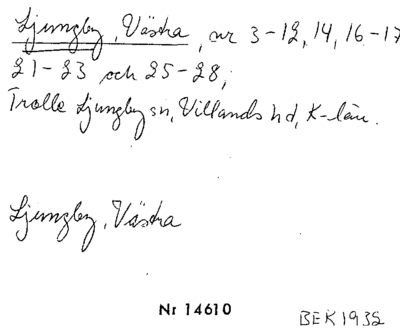 Ljungby, Västra, nr 3-12, 14, 16-17
21-23 och 25-28,
Trolle Ljungby sn, Villands hd, K-län.
Ljungby, Västra
Nr 14610
BEK 1935